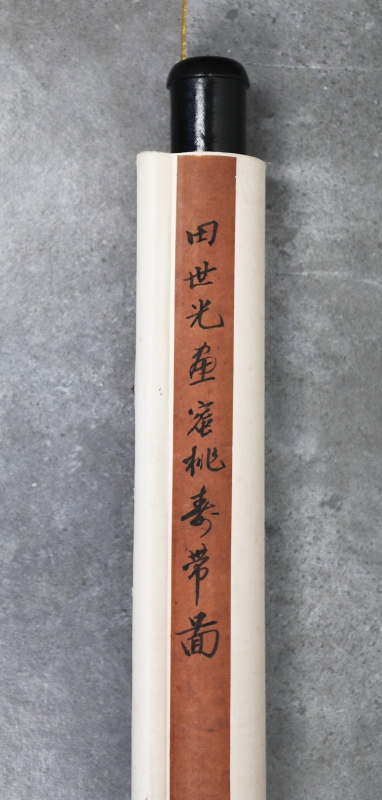 田世光画蜜桃寿带图